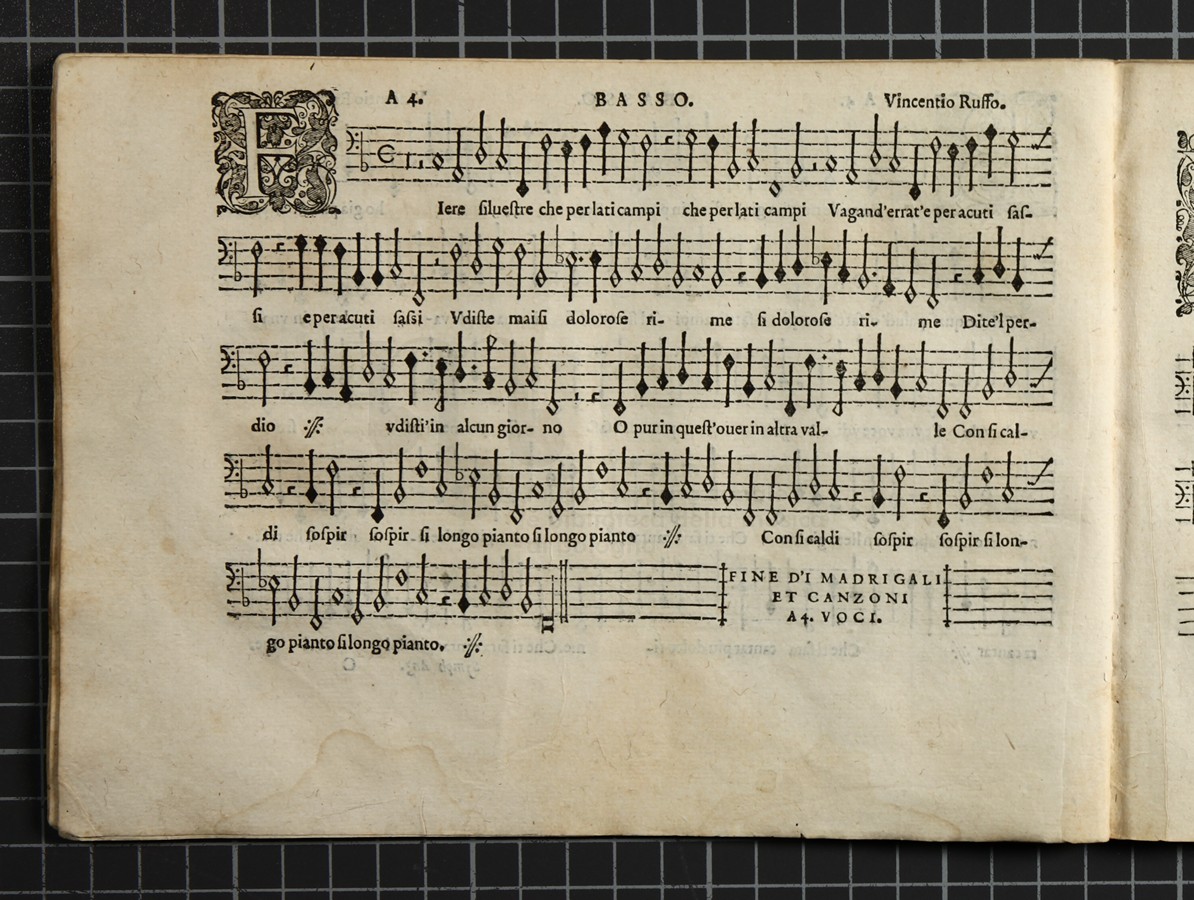 A 4. BASSO. Vincentio Ruffo.
FIere ſilueſtre che per lati campi che per lati campi Vagand'errat'e per acuti ſaſ-
ſi e per acuti ſaſsi Vdiſte mai ſi doloroſe ri- me ſi doloroſe ri- me Dite'l per-
dio :/: vdiſti'in alcun gior- no O pur in queſt'ouer in altra val- le Con ſi cal-
di ſoſpir ſoſpir ſi longo pianto ſi longo pianto :/: Con ſi caldi ſoſpir ſoſpir ſi lon-
go pianto ſi longo pianto. :/:
FINE D'I MADRIGALI
ET CANZONI
A 4. VOCI.